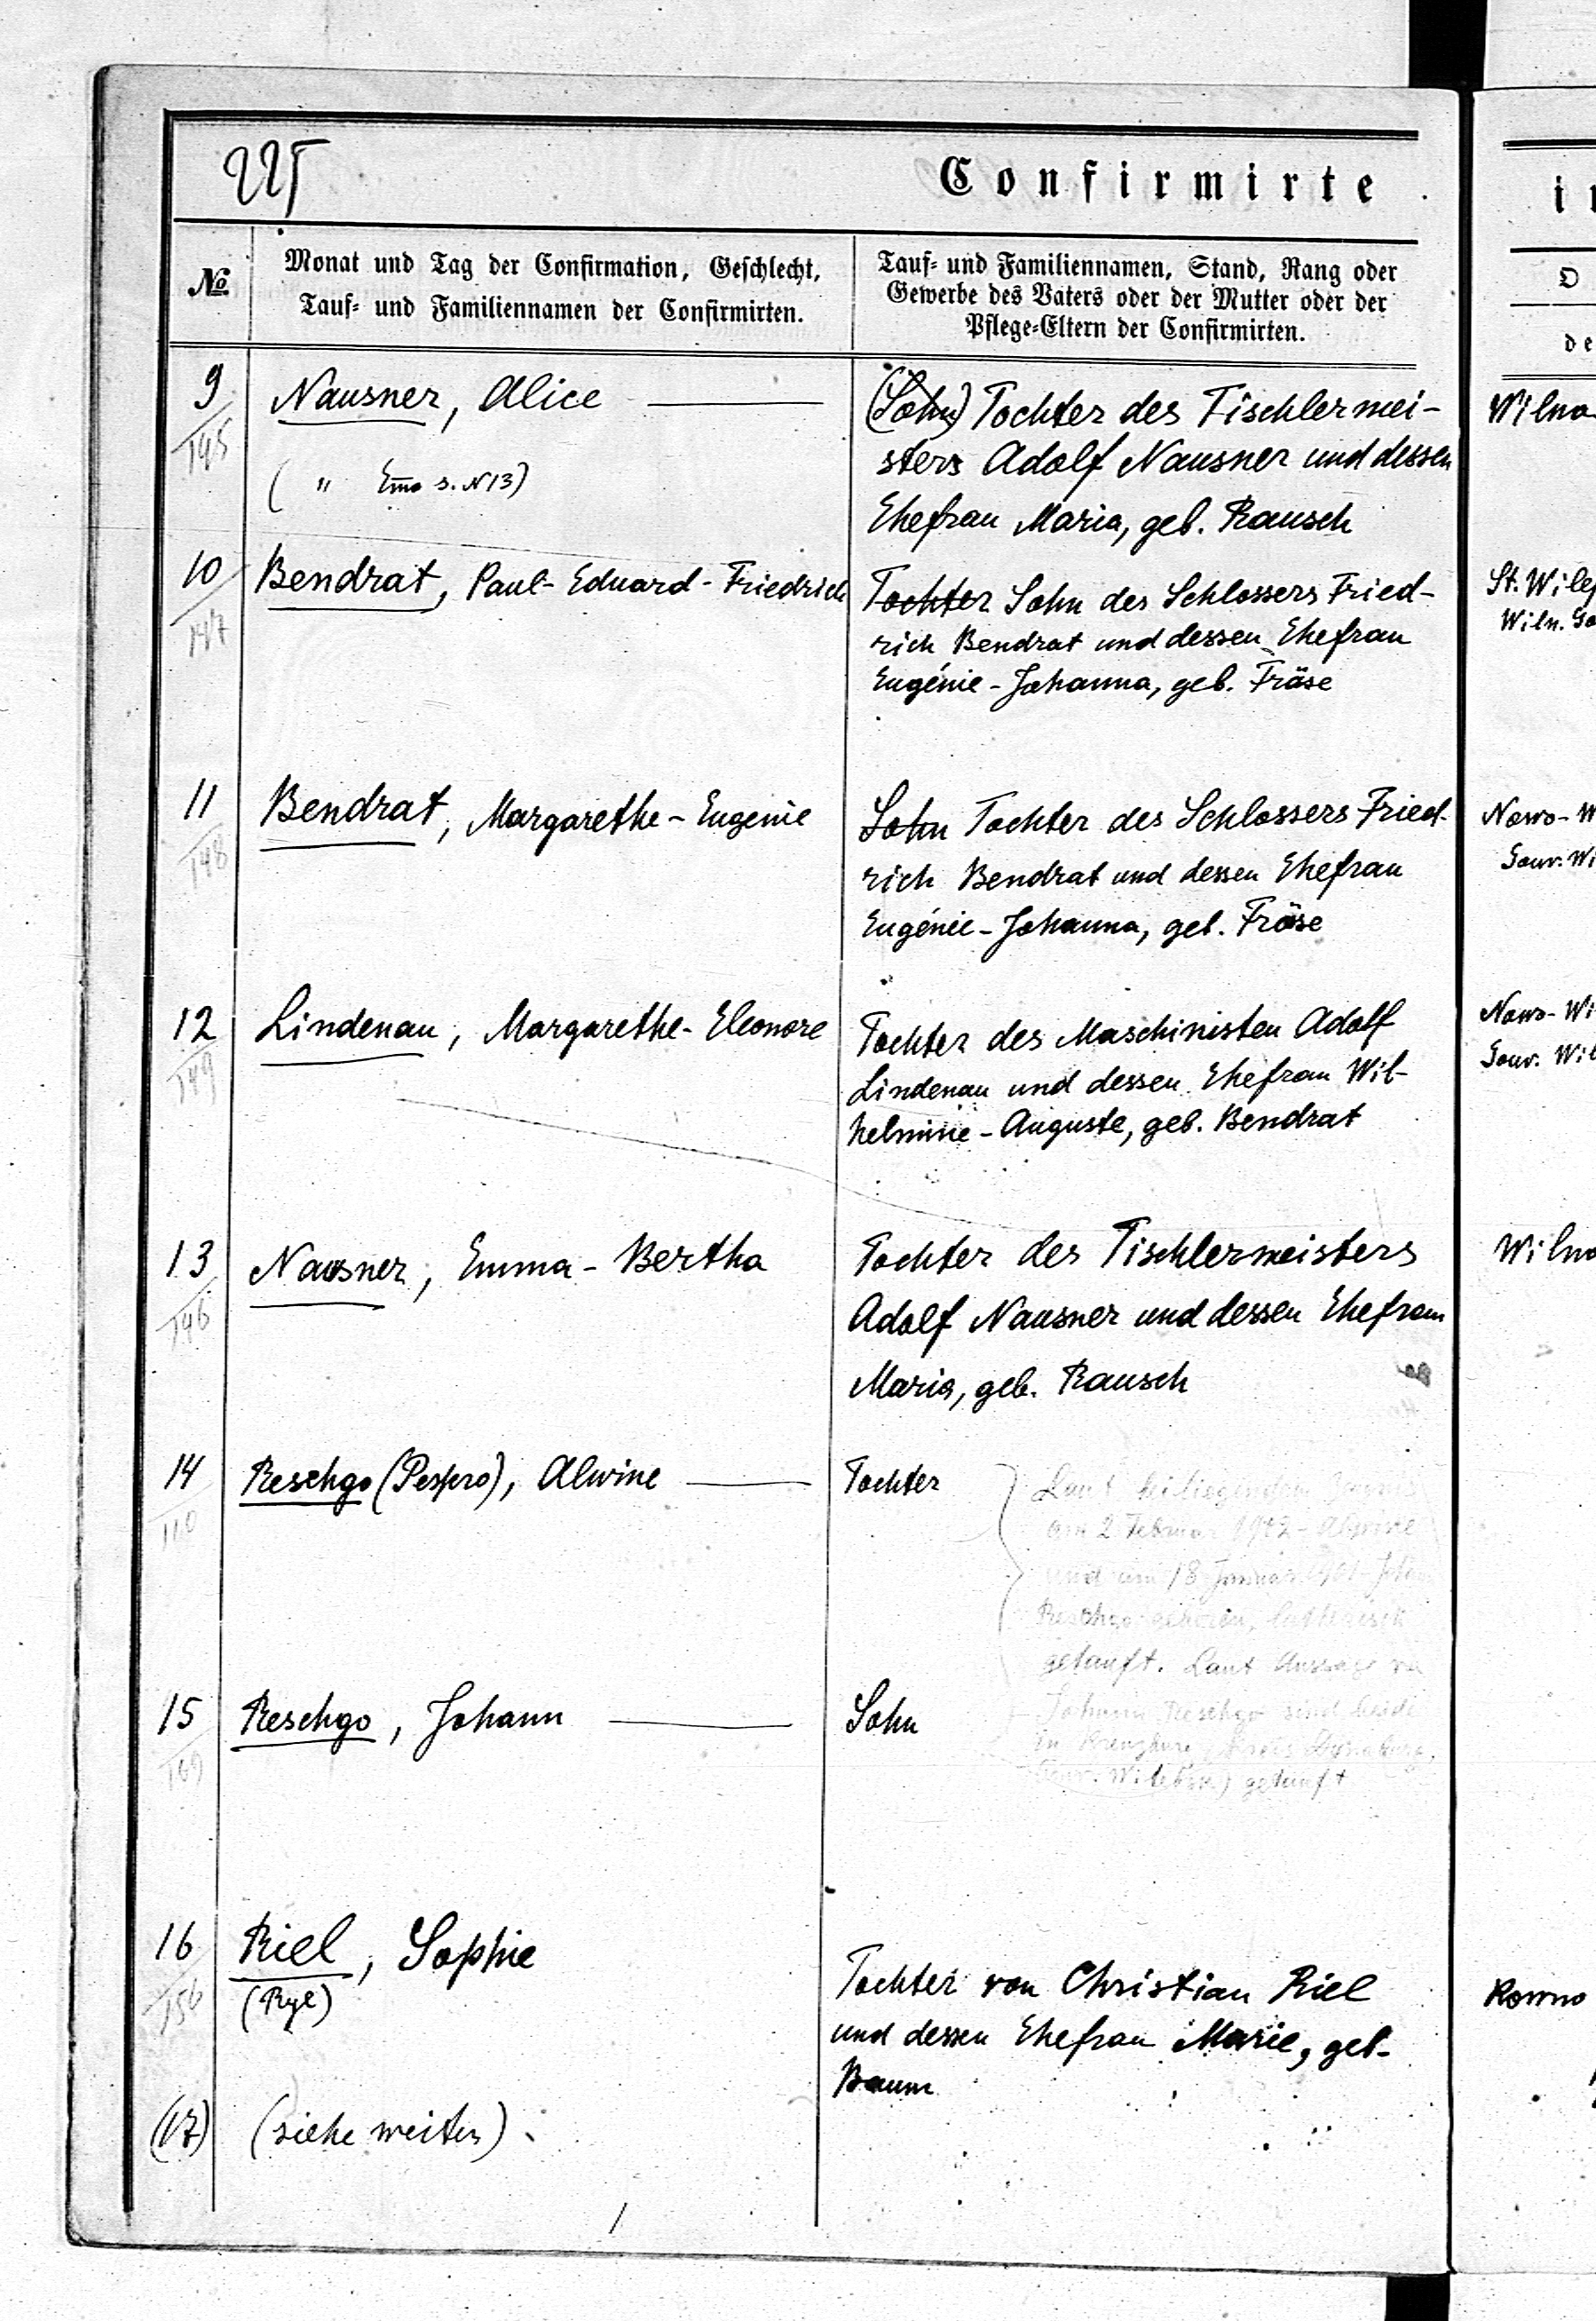 225
Confirmirte
№
Monat und Tag der Confirmation, Geschlecht,
Tauf- und Familiennamen der Confirmirten.
Tauf- und Familiennamen, Stand, Rang oder
Gewerbe des Vaters oder der Mutter oder der
Pflege-Eltern der Confirmirten.
9
145
Nausner, Alice
( " Emma s. N13)
(Sohn) Tochter des Tischlermei-
sters Adolf Nausner und dessen
Ehefrau Maria, geb. Rausch
Wilna
10
147
Bendrat, Paul-Eduard-Friedrich
Tochter Sohn des Schlossers Fried-
rich Bendrat und dessen Ehefrau
Eugénie-Johanna, geb. Fräse
St. Wilej
Wiln. Go
11
148
Bendrat, Margarethe-Eugenie
Sohn Tochter des Schlossers Fried-
rich Bendrat und dessen Ehefrau
Eugénie-Johanna, geb. Fräse
Nowo-W
Gouv. Wi
12
149
Lindenau, Margarethe-Eleonore
Tochter des Maschinisten Adolf
Lindenau und dessen Ehefrau Wil-
helmine-Auguste, geb. Bendrat
Nowo-Wi
Gouv. Wil
13
146
Nausner, Emma-Bertha
Tochter des Tischlermeisters
Adolf Nausner und dessen Ehefrau
Maria, geb. Rausch
Wilna
14
110
Reschgo (Pespro), Alwine
Tochter
Laut beiliegendem
am 2 Februar 1902 - Alwine
und am 18 Januar 1901 - Johann
Reschgo geboren, lutherisch
getauft. Laut Aussage von
Johann Reschgo sind beide
in Kreuzburg (Kreis Dünaburg,
Gouv. Witebsk) getauft
15
109
Reschgo, Johann
Sohn
16
156
Riel, Sophie
(Ryl)
Tochter von Christian Riel
und dessen Ehefrau Marie, geb.
Baum
Kowno
(17)
(siehe weiter)